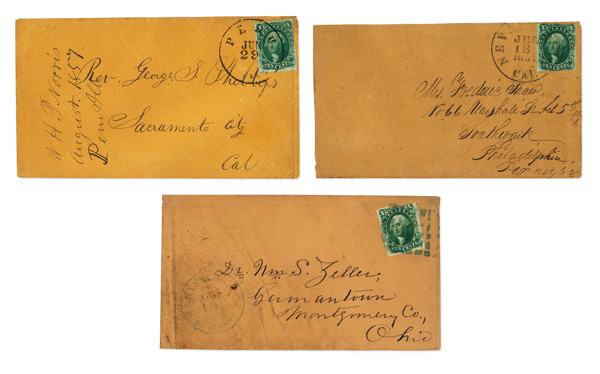 W H P Norris
August 1857
Peru Ills
PE
JUN
29
TEN CENTS
Rev. George S. Phillips
Sacramento City
Cal
NE
JUN
18
1857
CAL.
TEN CENTS
Mrs. Fredric Shaw,
No 66 Marshall St
Philadelphia,
TEN CENTS
Dr. Wm S. Zeller,
Germantown
Montgomery Co.,
Ohio